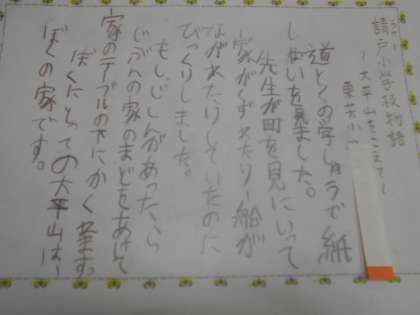 請戸小学校物語
～大平山をこえて～
東芳小
道とくの学しゅうで紙
しばいを見ました。
先生が町を見にいって
家がくずれたり、船が
ながれたりしていたのに
びっくりしました。
もしじしんがあったら
じぶんの家のまどをあけて
家のテーブルの下にかくれます。
ぼくにとっての大平山は、
ぼくの家です。